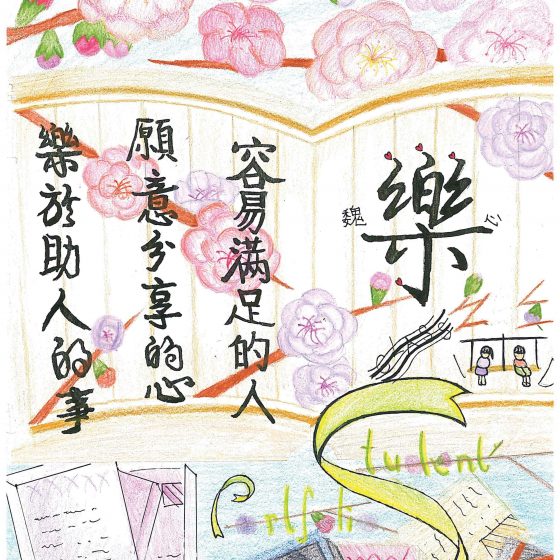 魏樂心
容易滿足的人
願意分享的心
樂於助人的事
Student
Portfolio